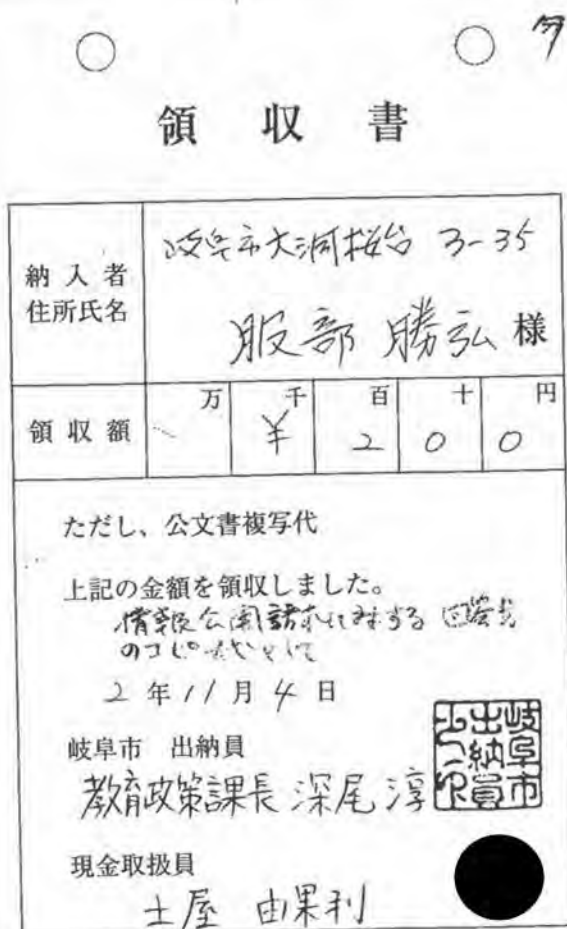 領収書
納入者
住所氏名
岐阜市大洞桜台 3-35
服部 勝弘 様
領収額
万 千 百 十 円
¥ 2 0 0
ただし、公文書複写代
上記の金額を領収しました。
情報公開請求に対する 回答書
のコピー代として
2 年 11 月 4 日
岐阜市 出納員
教育政策課長 深尾 淳
岐阜市
出納員
現金取扱員
土屋 由果利